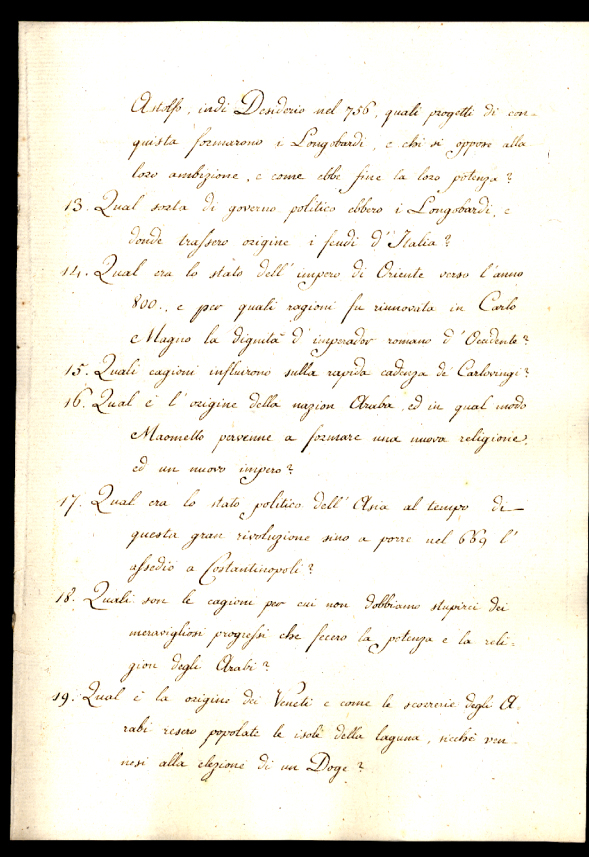 Astolfo, indi Desiderio nel 756, quali progetti di con-
quista formarono i Longobardi, e chi si oppose alla
loro ambizione, e come ebbe fine la loro potenza?
13. Qual sorta di governo politico ebbero i Longobardi, e
donde trassero origine i feudi d'Italia?
14. Qual era lo stato dell'impero di Oriente verso l'anno
800., e per quali ragioni fu rinnovata in Carlo
Magno la dignità d'imperador romano d'Occidente?
15. Quali cagioni influirono sulla rapida cadenza de' Carlovingi?
16. Qual è l'origine della nazion Araba, ed in qual modo
Maometto pervenne a formare una nuova religione,
ed un nuovo impero?
17. Qual era lo stato politico dell'Asia al tempo di
questa gran rivoluzione sino a porre nel 669 l'
assedio a Costantinopoli?
18. Quali son le cagioni per cui non dobbiamo stupirci dei
meravigliosi progressi che fecero la potenza e la reli-
gion degli Arabi?
19. Qual è la origine dei Veneti e come le scorrerie degli A-
rabi resero popolate le isole della laguna, sicchè ven-
nesi alla elezione di un Doge?